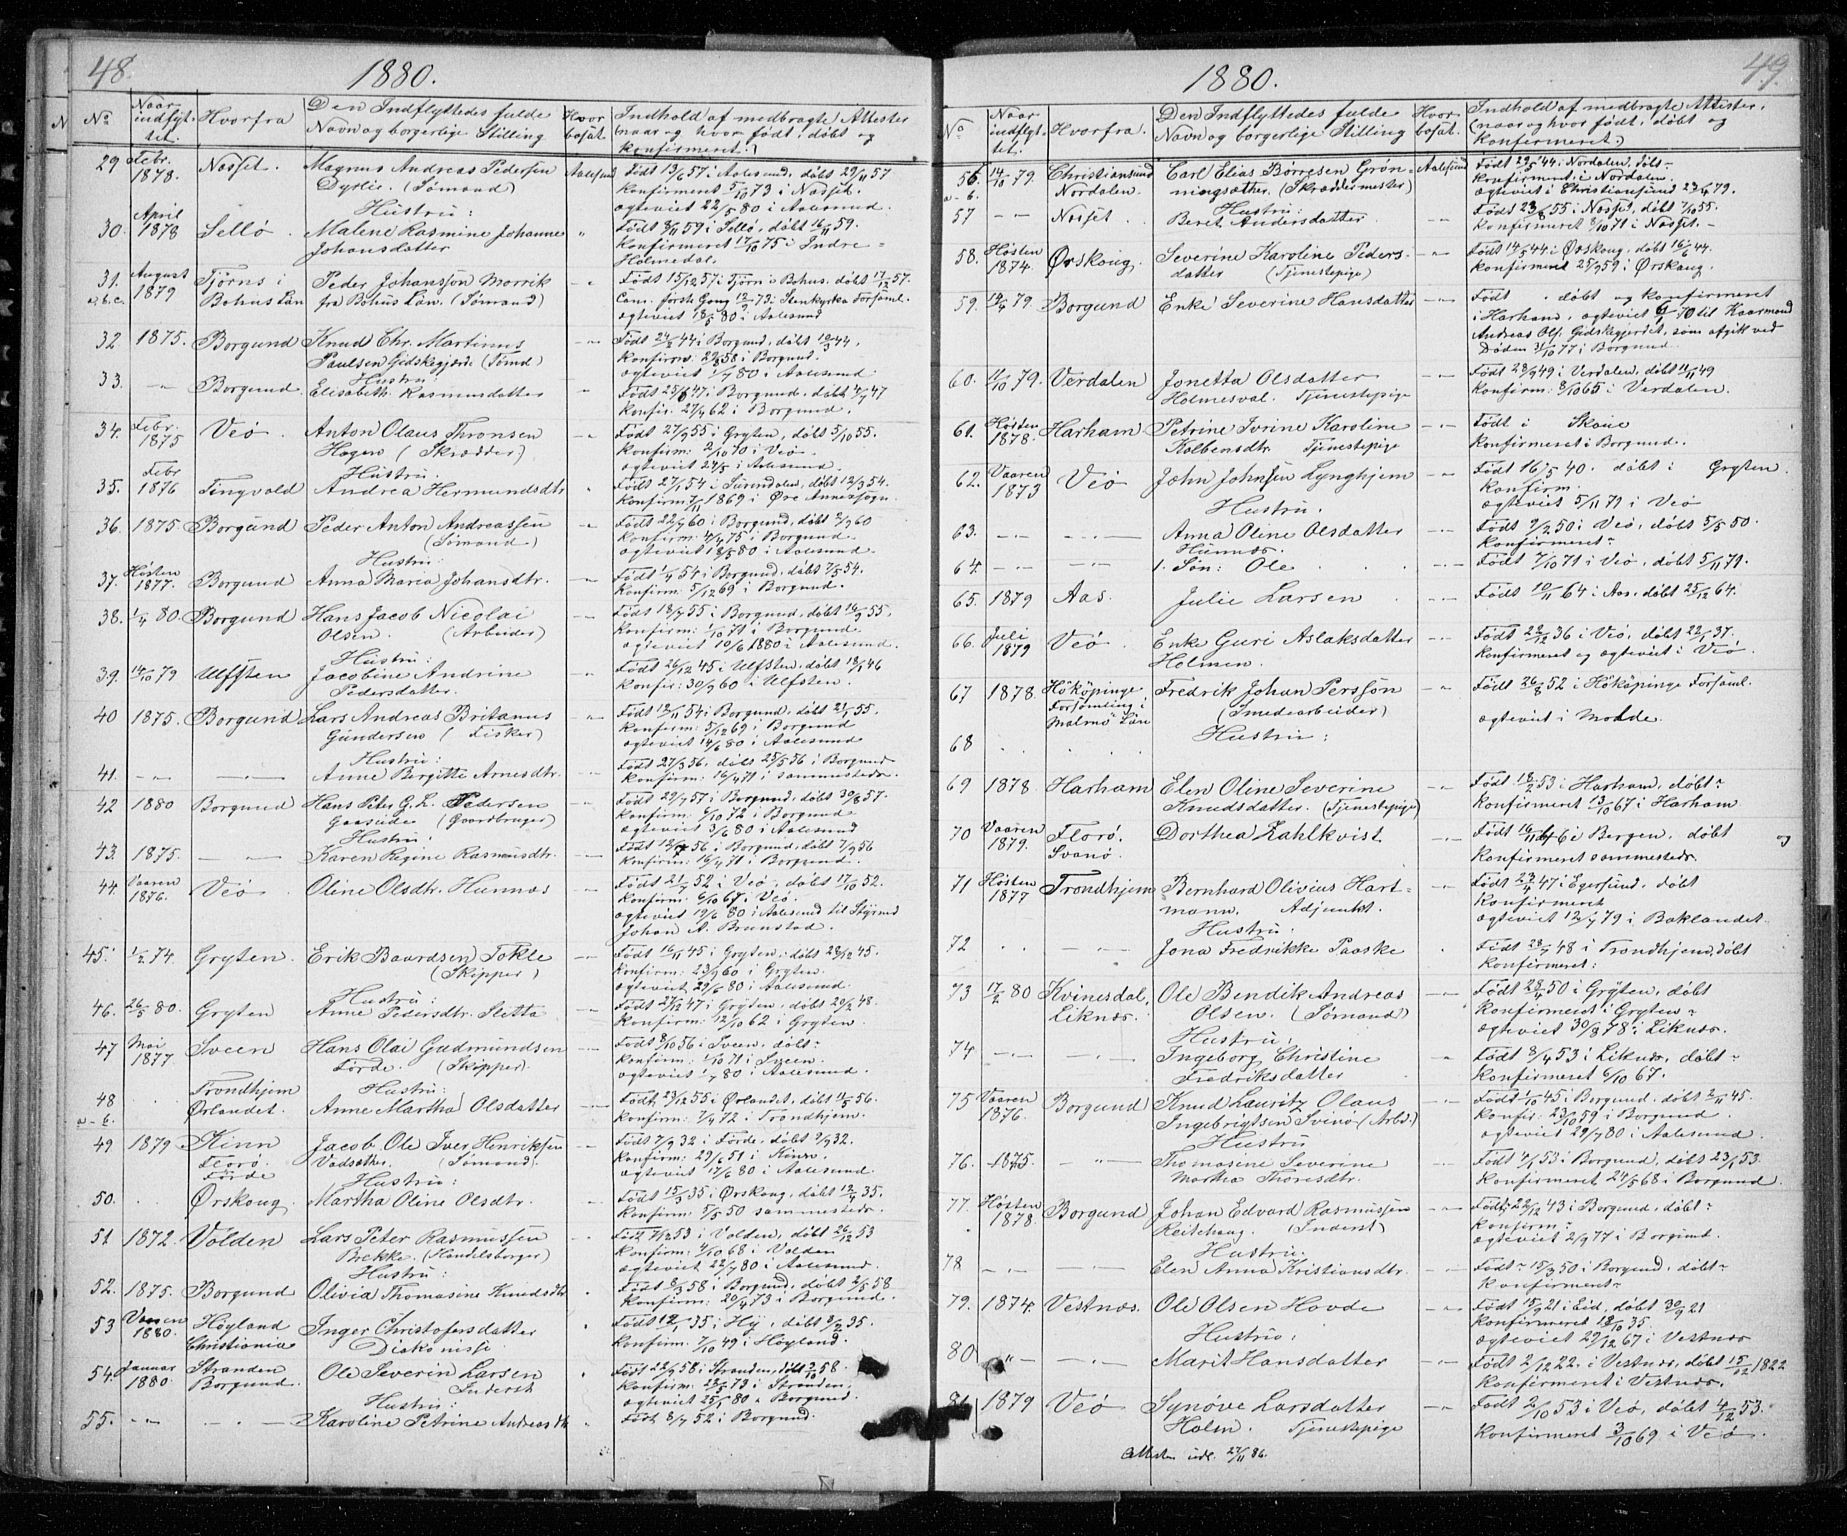 48.
1880.
No
Naar indflyttet.
Hvorfra
Den Indflyttedes fulde Navn og borgerlige Stilling
Hvor bosat.
Indhold af medbragte Attester (naar og hvor født, døbt og konfirmeret.)
29 Febr. 1878. Nosset. Magnus Andreas Pedersen Aalesund Født 13/6 57 i Aalesund, døbt 29/11 57
Dyrli. (Sømand) konfirmeret 5/10 73 i Nosset.
Hustru: ogteviet 22/5 80 i Aalesund.
30. April 1878 Sellø. Malene Rasmine Johanne " Født 8/11 59 i Sellø, døbt 16/11 59.
Johansdatter konfirmeret 17/10 75 i Indre=
Holmedal.
31. a,b,c. August 1879 Tjørns i Peder Johansson Morrik -"- Født 15/12 57 i Tjörn i Bohus. døbt 17/12 57.
Bohus Län fra Bohus Län. (Sømand) förste Gang 73. Stenkyrka Forsaml.
ogteviet 18/5 80 i Aalesund
32 1875. Borgund Knud Chr. Martinus -"- Født 24/2 44 i Borgund, døbt 10/3 44.
Paulsen Gidskegjerde (Sømd) Konfirm: 58 i Borgund.
Hustru: ogteviet 80 i Aalesund
33. -"- Borgund. Elisabeth Rasmusdatter -"- Født 25/6 47 i Borgund, døbt 4/7 47
Konfir. 27/4 62 i Borgund.
34. Febr. 1875 Veö. Anton Olaus Thronsen -"- Født 27/9 55 i Gryten, døbt 5/10 55.
Hagen (Skrædder) Konfirm: 2/10 70 i Veö.
Hustru: ogteviet 27/5 i Aalesund.
35. Febr 1876 Tingvold Andrea Hermundsdtr " Født 27/1 54 i Surendalen, døbt 12/3 54.
Konfirm 7/11 1869 i Øre Annexsogn.
36. 1875. Borgund Peder Anton Andreassen -"- Født 22/7 60 i Borgund, døbt 2/9 60
(Sømand) Konfirm: 4/4 75 i Borgund.
Hustru: ogteviet 18/5 80 i Aalesund.
37. Høsten 1877. Borgund Anna Maria Johansdtr. -"- Født 1/4 54 i Borgund, døbt 7/5 54.
Konfirm: 5/12 69 i Borgund.
38. 1/4 80 Borgund Hans Jacob Nicolai -"- Født 18/7 55 i Borgund, døbt 16/9 55.
Olsen. (Arbeider) Konfirm: 1/10 71 i Borgund.
Hustru: ogteviet 10/6 1880 i Aalesund.
39. 14/10 79 Ulfsten Jacobine Andrine -"- Født 26/12 45 i Ulfsten, døbt 18/1 46
Pedersdatter. Konfir: 30/9 60 i Ulfsten.
40 1875. Borgund Lars Andreas Britanus -"- Født 12/11 54 i Borgund, døbt 21/1 55.
Gundersen (Fisker) Konfirm: 5/12 69 i Borgund
Hustru: ogteviet 14/6 80 i Aalesund
41. -"- -"- Anne Birgitte Arnesdtr. -"- Født 27/3 56, døbt 25/5 56 i Borgund
Konfirm: 16/4 71 i sammesteds.
42 1880 Borgund Hans Peter G. L. Pedersen -"- Født 29/4 57 i Borgund, døbt 30/8 57.
Gaaseide (Gaardbruger) Konfirm: 6/10 72 i Borgund
Hustru: ogteviet 3/6 80 i Aalesund
43. 1875. -"- Karen Regine Rasmusdtr. -"- Født 56 i Borgund, døbt 7/9 56
Konfirm: 16/4 71 i Borgund.
44 Vaaren 1876. Veö Oline Olsdtr. Hunnes -"- Født 21/7 52 i Veö, døbt 17/10 52.
Konfirm: 6/10 67 i Veö.
ogteviet 19/6 80 i Aalesund til Styrmd
Johan A. Brunstad.
45. 1/2 74. Gryten. Erik Baardsen Tokle -"- Født 16/11 45 i Gryten, døbt 28/12 45.
(Skipper) Konfirm: 23/9 60 i Gryten.
Hustru: ogteviet 29/6 80 i Aalesund.
46. 26/5 80. Gryten Anne Pedersdtr. Sletta -"- Født 27/12 47 i Gryten, døbt 20/2 48.
Konfirm: 12/10 62 i Gryten.
47 Mai 1877. Sveen Hans Olai Gudmundsen -"- Født 8/10 56 i Sveen, døbt -
Førde. (Skipper) Konfirm: 1/10 71 i Sveen.
Hustru: ogteviet 80 i Aalesund.
48 a-b. Trondhjem Ørlandet. Anne Martha Olsdatter -"- Født 29/12 55 i Ørlandet, døbt 11/5 56.
konfirm: 7/4 72 i Trondhjem.
49 1879 Kinn Jacob Ole Iver Henriksen -"- Født 7/9 32 i Førde, døbt 2/9 32.
Florø. Vadsæther. (Sømand) Konfirm: 29/6 51 i Kinn.
Førde Hustru: ogteviet 17/6 80 i Aalesund
50. Ørskoug Martha Oline Olsdtr. -"- Født 15/3 35 i Ørskoug, døbt 12/4 35.
Konfirm: 5/5 50 sammesteds.
51 1872. Volden Lars Peter Rasmussen -"- Født 53 i Volden, døbt 26/12 53
Brekke. (Handelsborger) Konfirm: 4/10 68 i Volden
Hustru: ogteviet 22/7 80 i Aalesund.
52. 1875. Borgund Olivia Thomasine Knudsdtr " Født 8/3 58 i Borgund, døbt 2/5 58
Konfirm: 20/4 73 i Borgund.
53 Vaaren 1880. Høyland Inger Christofersdatter " Født 12/1 35 i Høy, døbt 8/2 35.
Christiania Diakonisse Konfirm: 7/10 49 i Høyland.
54. Januar 1880. Stranden Ole Severin Larsen " Født 22/9 58 i Stranden, døbt 3/10 58.
Borgund. Inderst Konfirm: 73 i Stranden
Hustru: ogteviet 25/1 80 i Borgund
55. -"- -"- Karoline Petrine Andreasdtr " Født 8/7 52 i Borgund.
49.
1880.
No
Naar indflyttet.
Hvorfra.
Den Indflyttedes fulde Navn og borgerlige Stilling
Hvor bosat.
Indhold af medbragte Attester. (naar og hvor født, døbt og konfirmeret.)
56. a-b. 14/10 79. Christiansund Carl Elias Børresen Grøn= Aalesund Født 29/5 44 i Nordalen, døbt -
Nordalen. ningsæther. (Skræddermester) konfirmert i Nordalen.
Hustru: ogteviet i Christiansund 23/4 79.
57 -- Nosset Beret Andersdatter -"- Født 23/8 55 i Nosset, døbt 7/10 55.
konfirmeret 8/10 71 i Nosset.
58. Høsten 1874. Ørskoug. Severine Karoline Peders= -"- Født 14/5 44 i Ørskoug, døbt 16/6 44.
datter (Tjenestepige) konfirmeret 25/9 59 i Ørskoug.
59. 14/4 79. Borgund Enke Severine Hansdatter -"- Født . døbt og konfirmeret
i Harham, ogteviet 70 til Kaarmand
Andreas Ols. Gidskegjerdet, som afgik ved
Døden 31/10 77 i Borgund.
60. 11/10 79. Verdalen Jonetta Olsdatter -"- Født 23/9 49 i Verdalen, døbt 11/11 49
Holmesval. Tjenestepige Konfirm: 8/10 65 i Verdalen.
61. Høsten 1878. Harham Petrine Ivrine Karoline -"- Født i Skoue
Kolbensdtr. Tjenestepige Konfirmeret i Borgund.
62. Vaaren 1873 Veö John Johnsen Lynghjem -"- Født 16/5 40. døbt i Gryten.
Konfirm.
Hustru. ogteviet 5/11 71 i Veö
63. -"- -"- Anna Oline Olsdatter -"- Født 9/2 50 i Veö, døbt 5/5 50.
Hunnes. Konfirmeret -
64. -"- -"- 1. Søn: Ole -"- Født 7/10 71 i Veö, døbt 5/11 71.
65. 1879 Aas. Julie Larsen -"- Født 10/11 64 i Aas, døbt 25/12 64.
66. Juli 1879 Veö. Enke Guri Aslaksdatter -"- Født 22/12 36 i Veö, døbt 22/1 37.
Holmen. Konfirmeret og ogteviet i Veö.
67 1878. Høköpinge Fredrik Johan Persson -"- Født 26/8 52 i Høköpinge Forsaml.
Forsamling i (Smedarbeider)
Malmö Län ogteviet i Molde.
68 Hustru:
69 1878. Harham Elen Oline Severine -"- Født 18/2 53 i Harham, døbt -
Knudsdatter. (Tjenestepige) Konfirmeret 13/10 67 i Harham
70 Vaaren 1879. Florø. Dorthea Zahlkvist -"- Født 16/11 46 i Bergen, døbt og
Svanø. Konfirmeret sammesteds.
71 Høsten 1877 Trondhjem Bernhard Olivius Hart= -"- Født 47 i Egersund, døbt
mann. Adjunkt. Konfirmeret
Hustru: ogteviet 12/7 79 i Baklandet.
72 Jona Fredrikke Paaske Født 28/7 48 i Trondhjem, døbt
Konfirmeret:
73 17/2 80 Kvinesdal, Ole Bendik Andreas -"- Født 28/4 50 i Gryten, døbt
Liknæs. Olsen. (Sømand) Konfirmeret i Gryten -
Hustru: ogteviet 30/8 78 i Liknæs.
74 -"- -"- Ingeborg Christine " Født 8/4 53 i Liknæs, døbt -
Fredriksdatter Konfirmeret 6/10 67.
75 Vaaren 1876. Borgund Knud Lauritz Olaus -"- Født 1/10 45 i Borgund, døbt 2/11 45.
Ingebrigtsen Svinø (Arbd.) Konfir: 23/10 59 i Borgund
Hustru ogteviet 29/7 80 i Aalesund.
76. 1875. -"- Thomasine Severine -"- Født 4/1 53 i Borgund, døbt 23/1 53.
Martha Thoresdtr. Konfirmeret 24/5 68 i Borgund.
77. Høsten 1878. Borgund Johan Edvard Rasmussen -"- Født 22/12 43 i Borgund, døbt -
Reitehaug. (Inderst) Konfirm -
Hustru: ogteviet 2/9 77 i Borgund.
78 -"- -"- Elen Anna Kristiansdtr. -"- Født 15/3 50 i Borgund, døbt -
Konfirmeret -
79. 1874. Vestnæs. Ole Olsen Hovde -"- Født 15/9 21 i Eid, døbt 30/9 21
Konfirmeret 18/10 35.
Hustru: ogteviet 29/12 67 i Vestnæs
80 -"- -"- Marit Hansdatter -"- Født 2/12 22. i Vestnæs, døbt 15/12 1822
Konfirmeret i Vestnæs.
81. 1879 Veö Synøve Larsdatter -"- Født 2/10 53 i Veö, døbt 4/12 53.
Holm. Tjenestepige Konfirmeret 3/10 69 i Veö.
Attesten udl. 27/11 86.